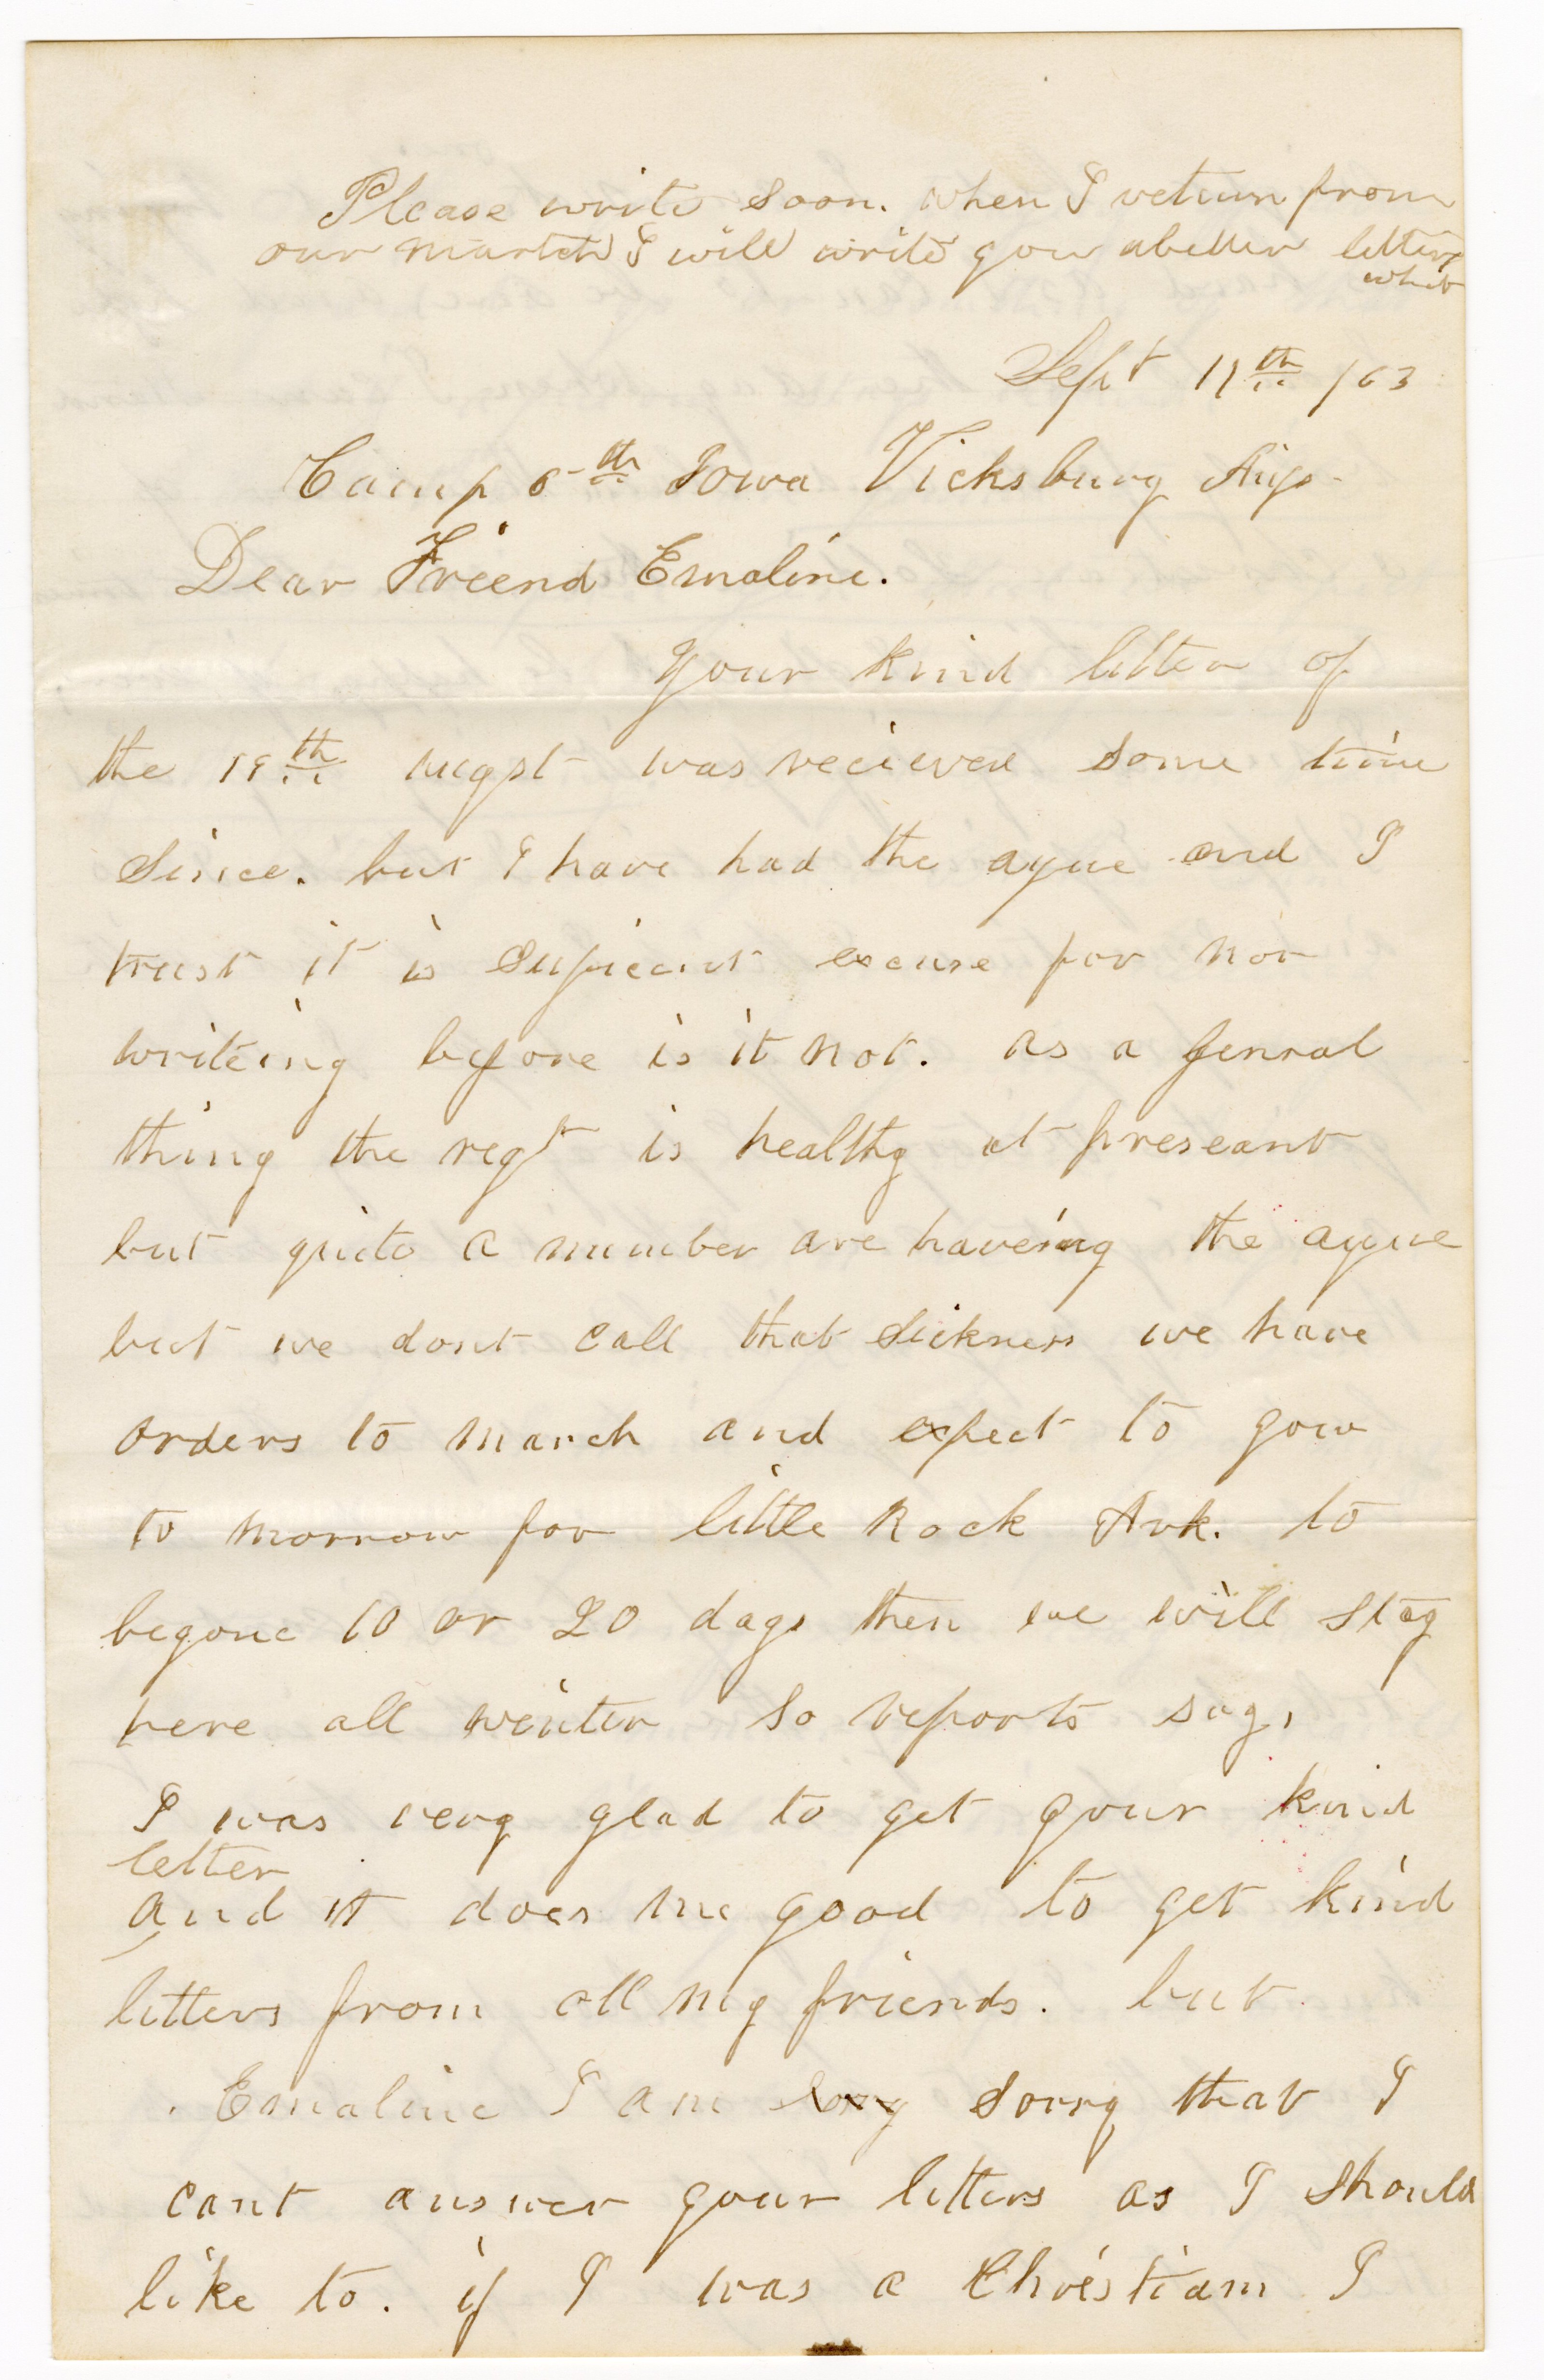 Please write soon. when I return from
our martch I will write you abetter letter
whit
Sept 11th /63
Camp 5th Iowa Vicksburg
Dear Freend Emaline.
Your kind letter of
the 19th augst was recieved some time
since. but I have had the ague and I
trust it is suficent excuse for not
writeing before is it not. as a genral
thing the regt is healthy at preseant
but quite a number are haveing the ague
but we dont call that sickness we have
orders to march and expect to gow
to morrow for little Rock Ark. to
begone 10 or 20 days then we will stay
here all winter so reports say,
I was very glad to get your kind
letter
and it does me good to get kind
letters from all my friends. but
Emaline I am sorry that I
cant answer your letters as I should
like to. if I was a Christian I